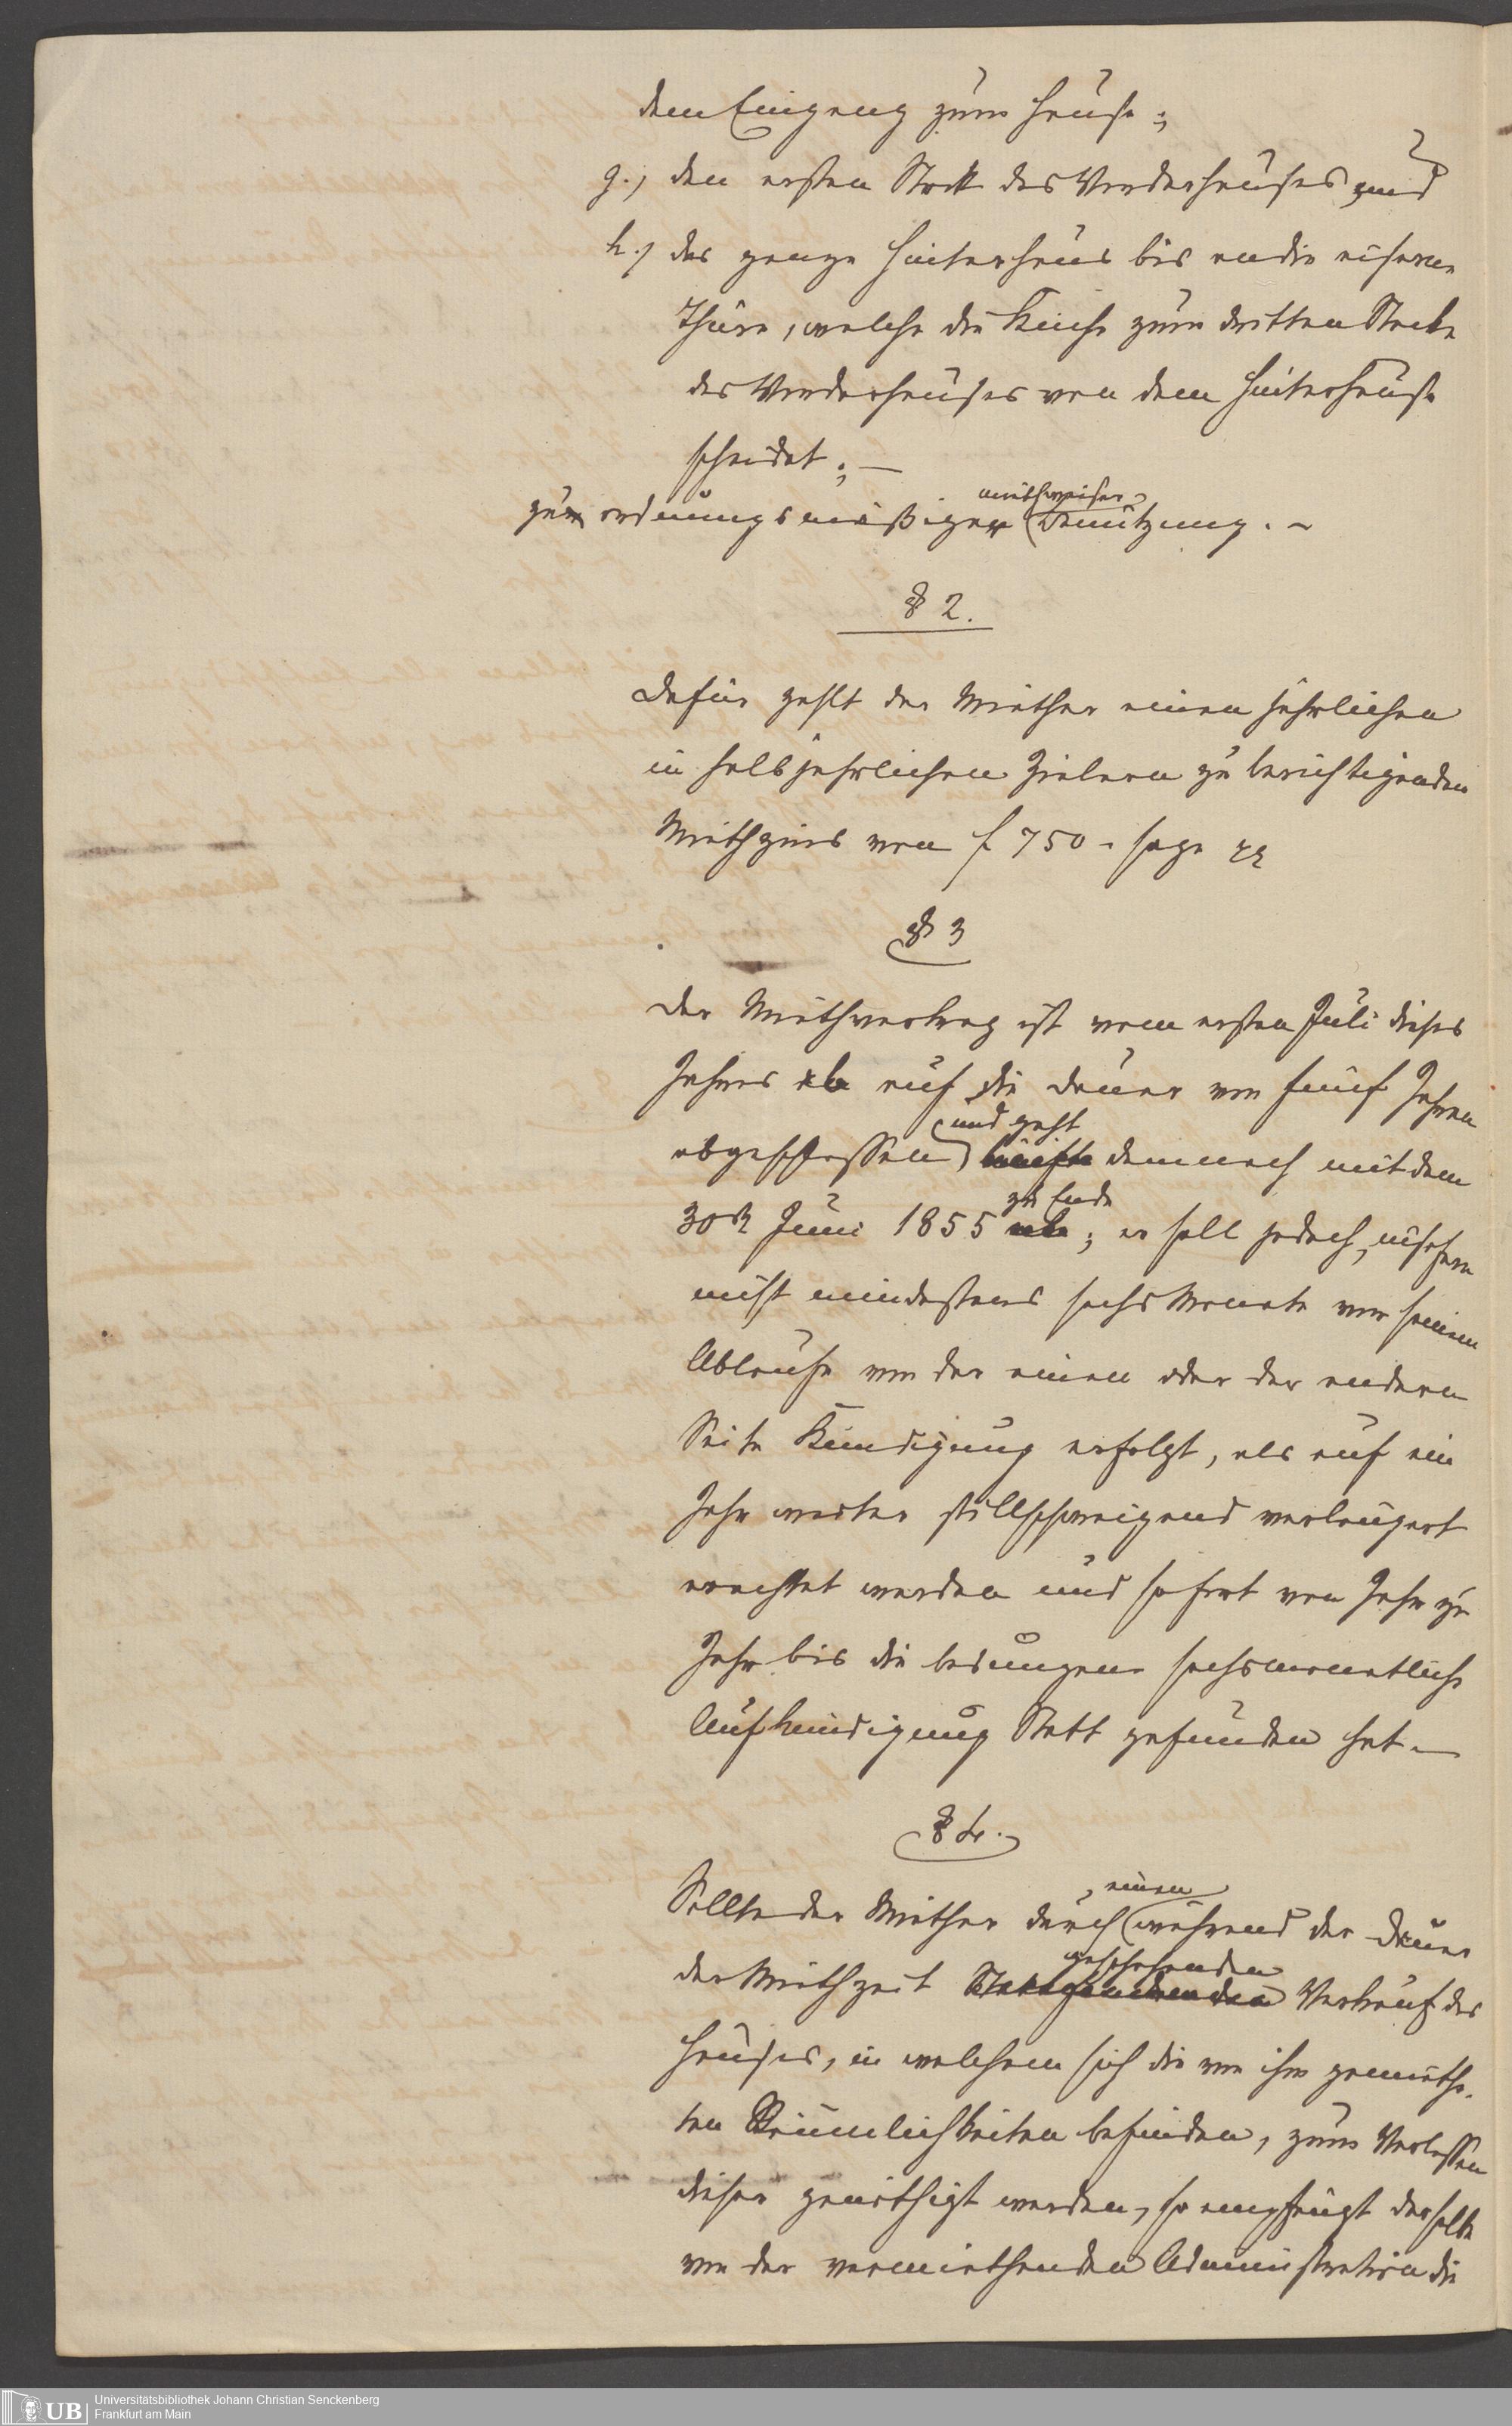 dem Eingang zum Hause;
g.) den ersten Stock des Vorderhauses und
h.) das ganze Hinterhaus bis an die eiserne
Thüre, welche die Küche zum dritten Stocke
des Vorderhauses von dem Hinterhause
scheidet; —
miethweiser
zur ordnungsmäßigen Benützung. —
§ 2.
Dafür zahlt der Miether einen jährlichen
in halbjährlichen Zielern zu berichtigenden
Miethzins von f 750 - sage
§ 3
Der Miethvertrag ist vom ersten Juli dieses
Jahres ab auf die Dauer von fünf Jahren
und geht
abgeschlossen läuft demnach mit dem
zu Ende
30ten Juni 1855 ab; er soll jedoch, insofern
nicht mindestens sechs Monate vor seinem
Ablaufe von der einen oder der andern
Seite Kündigung erfolgt, als auf ein
Jahr weiter stillschweigend verlängert
erachtet werden und sofort von Jahr zu
Jahr bis die bedungene sechsmonatliche
Aufkündigung Statt gefunden hat. —
§ 4.
einen
Sollte der Miether durch während der Dauer
geschehenden
der Miethzeit Verkauf des
Hauses, in welchem sich die von ihm gemiethe-
ten Räumlichkeiten befinden, zum Verlassen
dieser genöthigt werden, so empfängt derselbe
von der vermiethenden Administration die
Universitätsbibliothek Johann Christian Senckenberg
Frankfurt am Main
UB